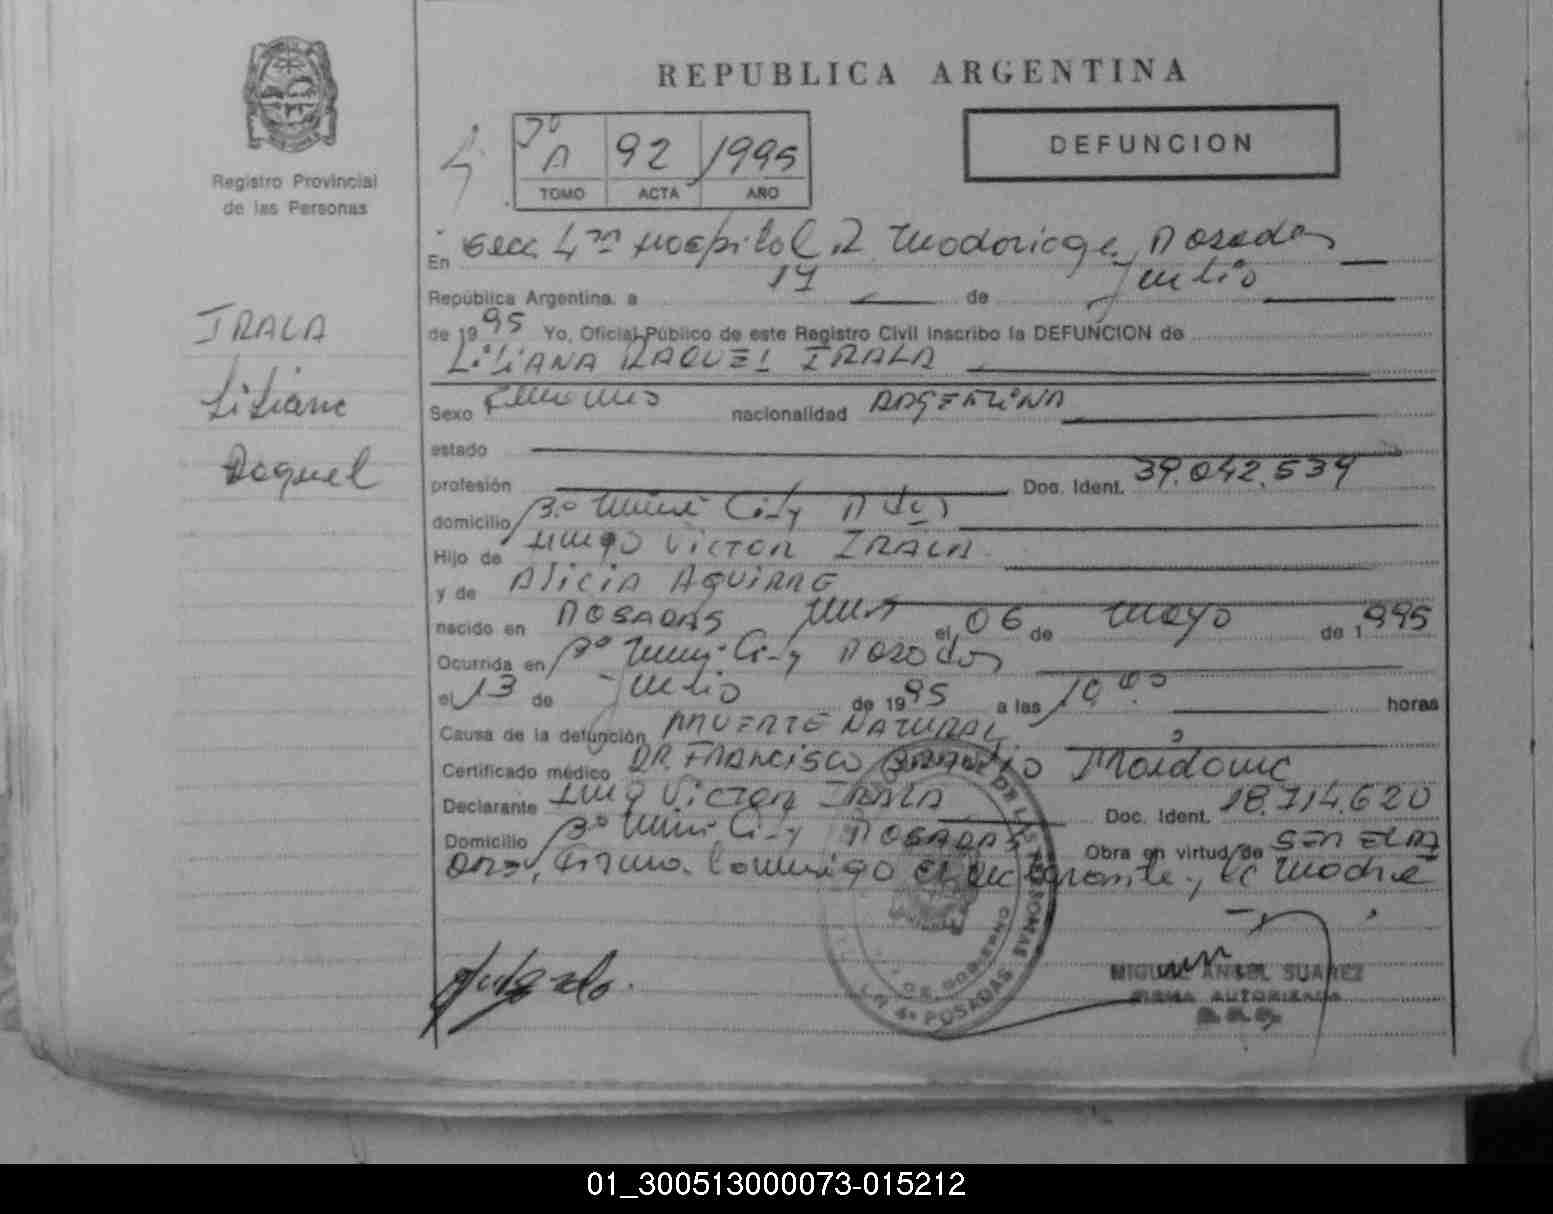 REPUBLICA ARGENTINA
Registro Provincial
de las Personas
DEFUNCION
A 92 1995
TOMO ACTA AÑO
En Secc 4ta Hospital R. Madariaga Posadas
República Argentina, a 14 de Julio
de 1995 Yo, Oficial Público de este Registro Civil Inscribo la DEFUNCION de
LiLIANA RAQUEL IRALA
IRALA
Liliana
Raquel
Sexo Femenino nacionalidad ARGENTINA
estado
profesión Doc. Ident. 39.042.534
domicilio Bº Mini City Pdas
Hijo de Hugo VICTOR IRALA
y de Alicia AGUIRRE
nacido en POSADAS Mnes el 06 de Mayo de 1995
Ocurrida en Bº Mini City Posadas
el 13 de Julio de 1995 a las horas
Causa de la defunción MUERTE NATURAL
Certificado médico DR. FRANCISCO Maidana
Declarante Hugo Victor IRALA Doc. Ident. 18.714.620
Domicilio Bº Mini City POSADAS Obra en virtud de SER EL PA
DRE, Firma Conmigo el declarante, la Madre
DE LAS PERSONAS
DE GOBIERNO
4ª POSADAS
MIGUEL ANGEL SUAREZ
FIRMA AUTORIZADA
01_300513000073-015212